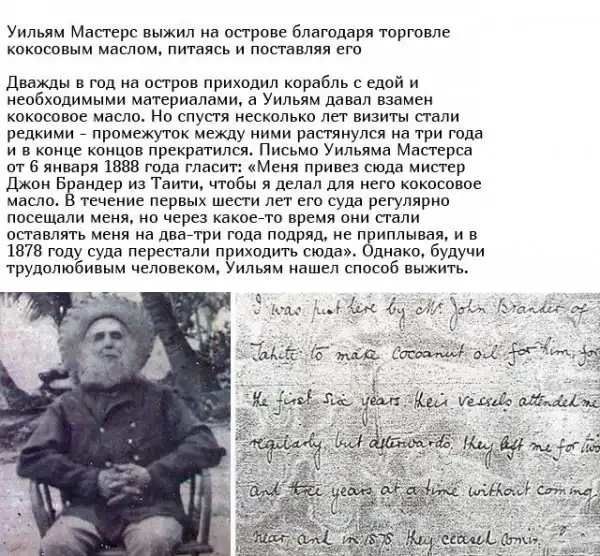 Уильям Мастерс выжил на острове благодаря торговле
кокосовым маслом, питаясь и поставляя его
Дважды в год на остров приходил корабль с едой и
необходимыми материалами, а Уильям давал взамен
кокосовое масло. Но спустя несколько лет визиты стали
редкими - промежуток между ними растянулся на три года
и в конце концов прекратился. Письмо Уильяма Мастерса
от 6 января 1888 года гласит: «Меня привез сюда мистер
Джон Брандер из Таити, чтобы я делал для него кокосовое
масло. В течение первых шести лет его суда регулярно
посещали меня, но через какое-то время они стали
оставлять меня на два-три года подряд, не приплывая, и в
1878 году суда перестали приходить сюда». Однако, будучи
трудолюбивым человеком, Уильям нашел способ выжить.
I was put here by Mr. John Brander of
Tahiti to make cocoanut oil for him, for
the first six years their vessels attended me
regularly but afterwards they left me for two
and three years at a time without coming
near, and in they ceased